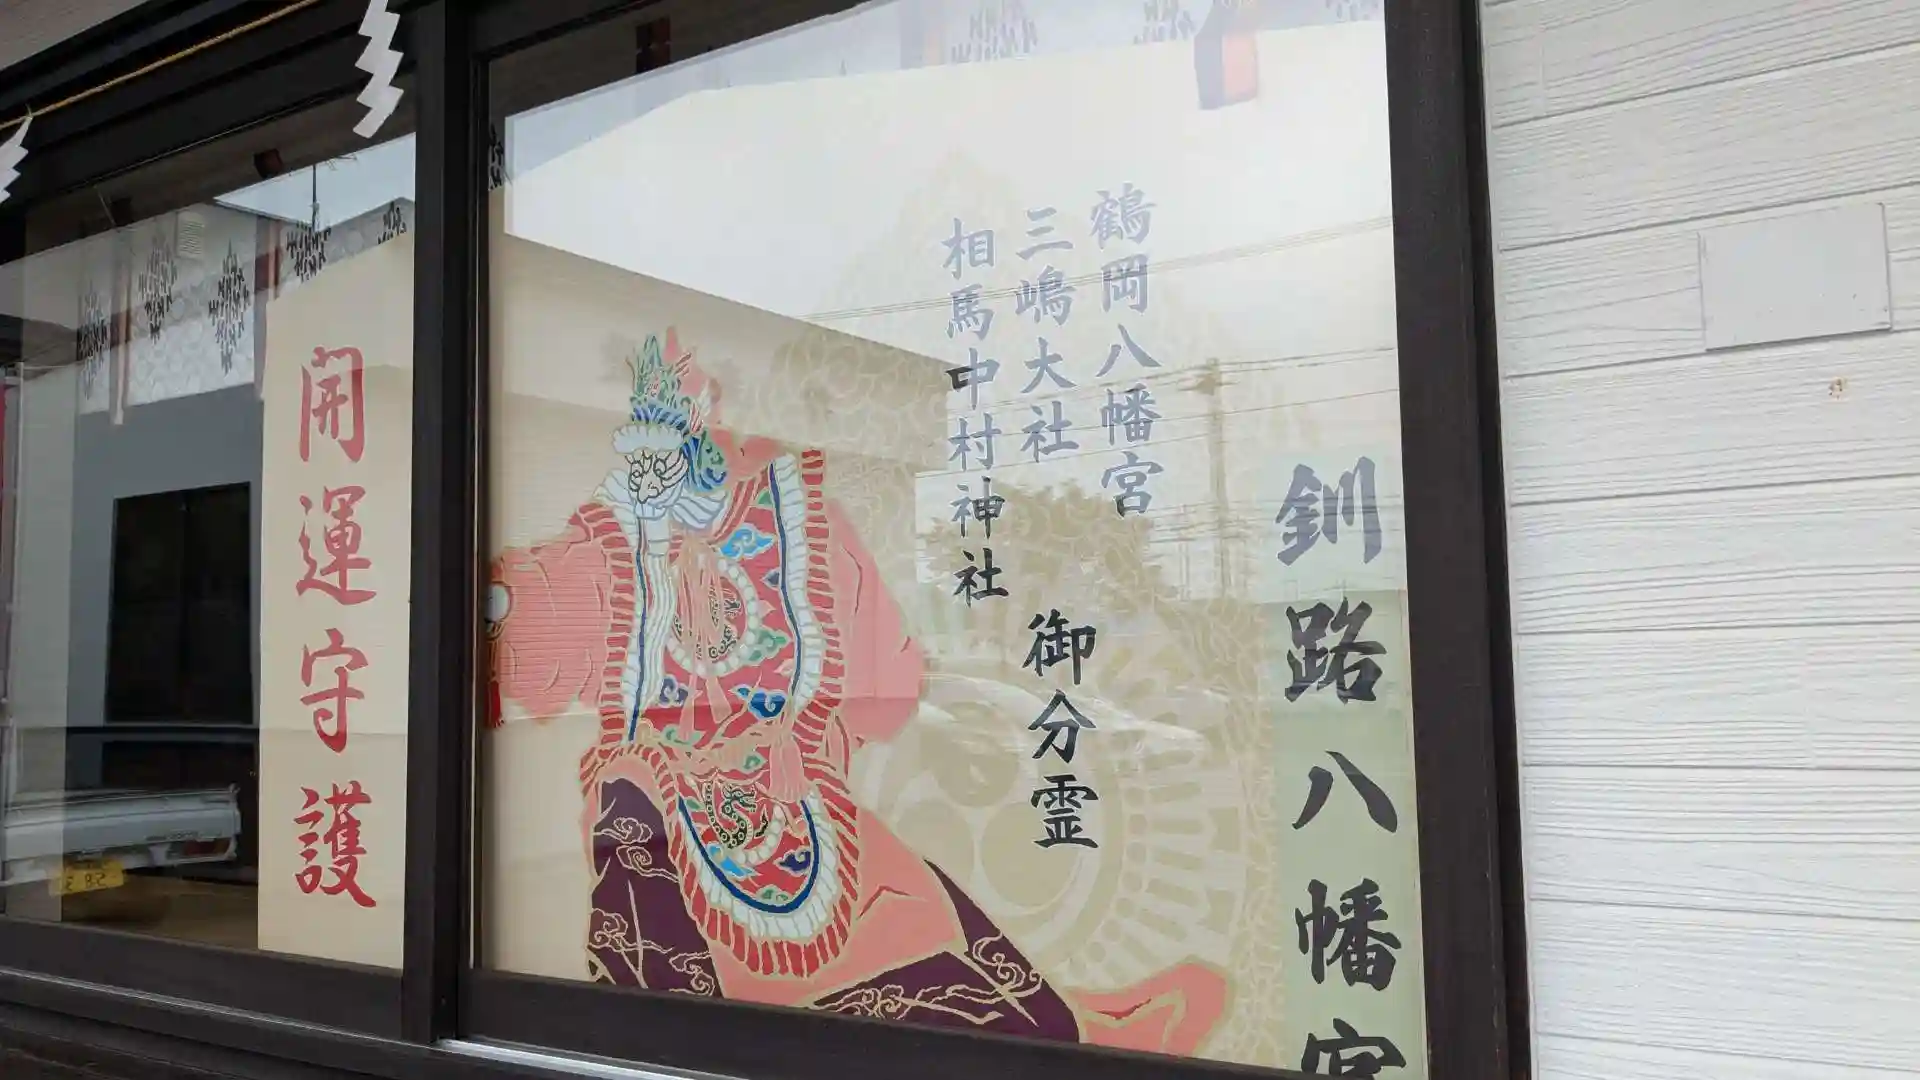 釧路八幡宮
鶴岡八幡宮
三嶋大社
相馬中村神社
御分霊
開運守護